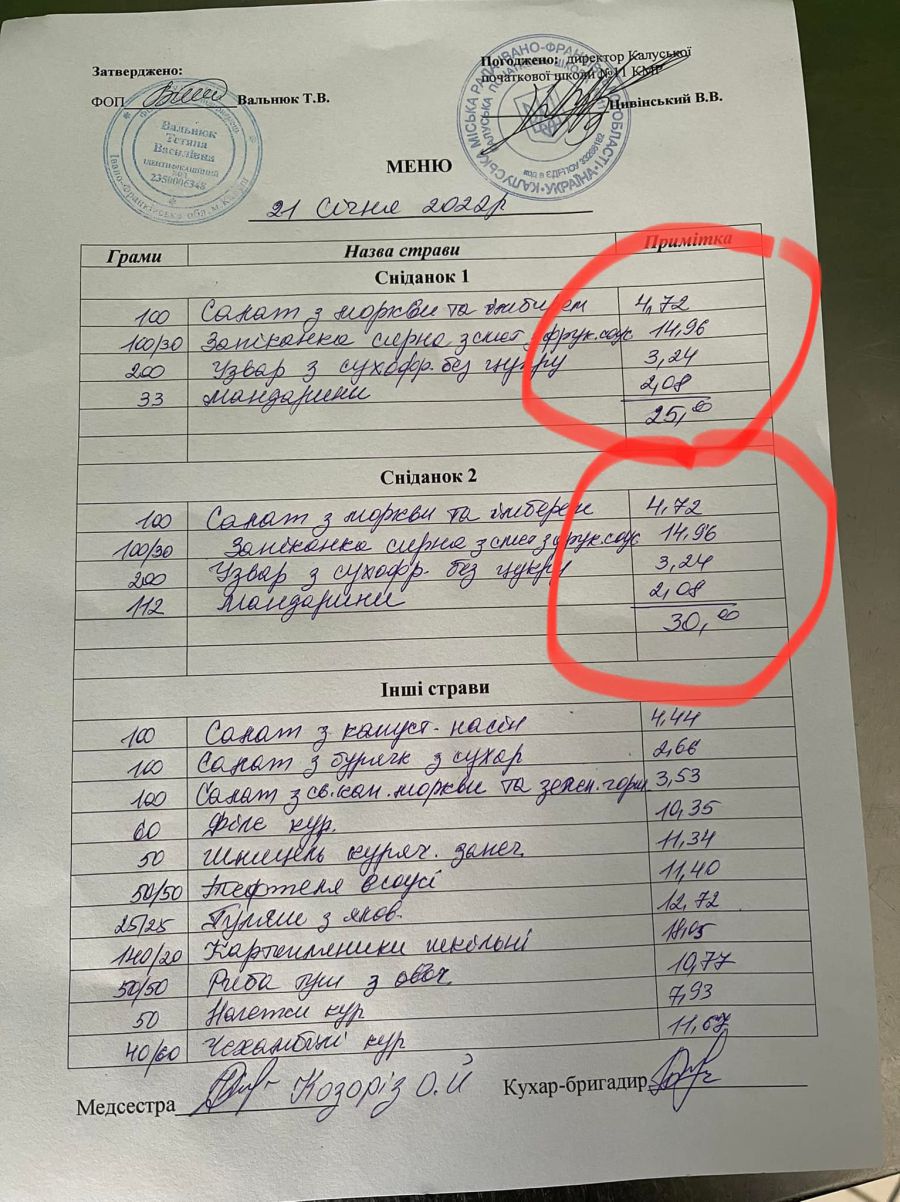 Затверджено:
ФОП Вальнюк Т.В.
Погоджено: директор Калуської
початкової школи №11 КМР
Цивінський В.В.
Вальнюк
Тетяна
Василівна
ІДЕНТИФІКАЦІЙНИЙ
КОД
2350006348
Івано-Франківська обл. м. Калуш
КАЛУСЬКА МІСЬКА РАДА ІВАНО-ФРАНК ОБЛАСТІ
УКРАЇНА
МЕНЮ
21 Січня 2022р
Грами Назва страви Примітка
Сніданок 1
100 Салат з моркви та імбирем 4,72
100/30 Запіканка сирна з смет з фрук.соус 14,96
200 Узвар з сухофр. без цукру 3,24
33 мандарини 2,08
25,00
Сніданок 2
100 Салат з моркви та імберем 4,72
100/30 Запіканка сирна з смет з фрук.соус 14,96
200 Узвар з сухофр. без цукру 3,24
112 Мандарини 2,08
30,00
Інші страви
100 Салат з капуст. насін 4,44
100 Салат з буряк з сухар 2,66
100 Салат з св.кап. моркви та зелен. горш 3,53
60 Філе кур. 10,35
50 Шніцель куряч. запеч. 11,34
50/50 Тефтеля в соусі 11,40
25/25 Гуляш з ялов. 12,72
140/20 Картопляники шкільні 18,05
50/50 Риба туш з овоч. 10,77
50 Нагетси кур 7,93
40/60 Чехамбілі кур 11,67
Медсестра Козоріз О.Й Кухар-бригадир